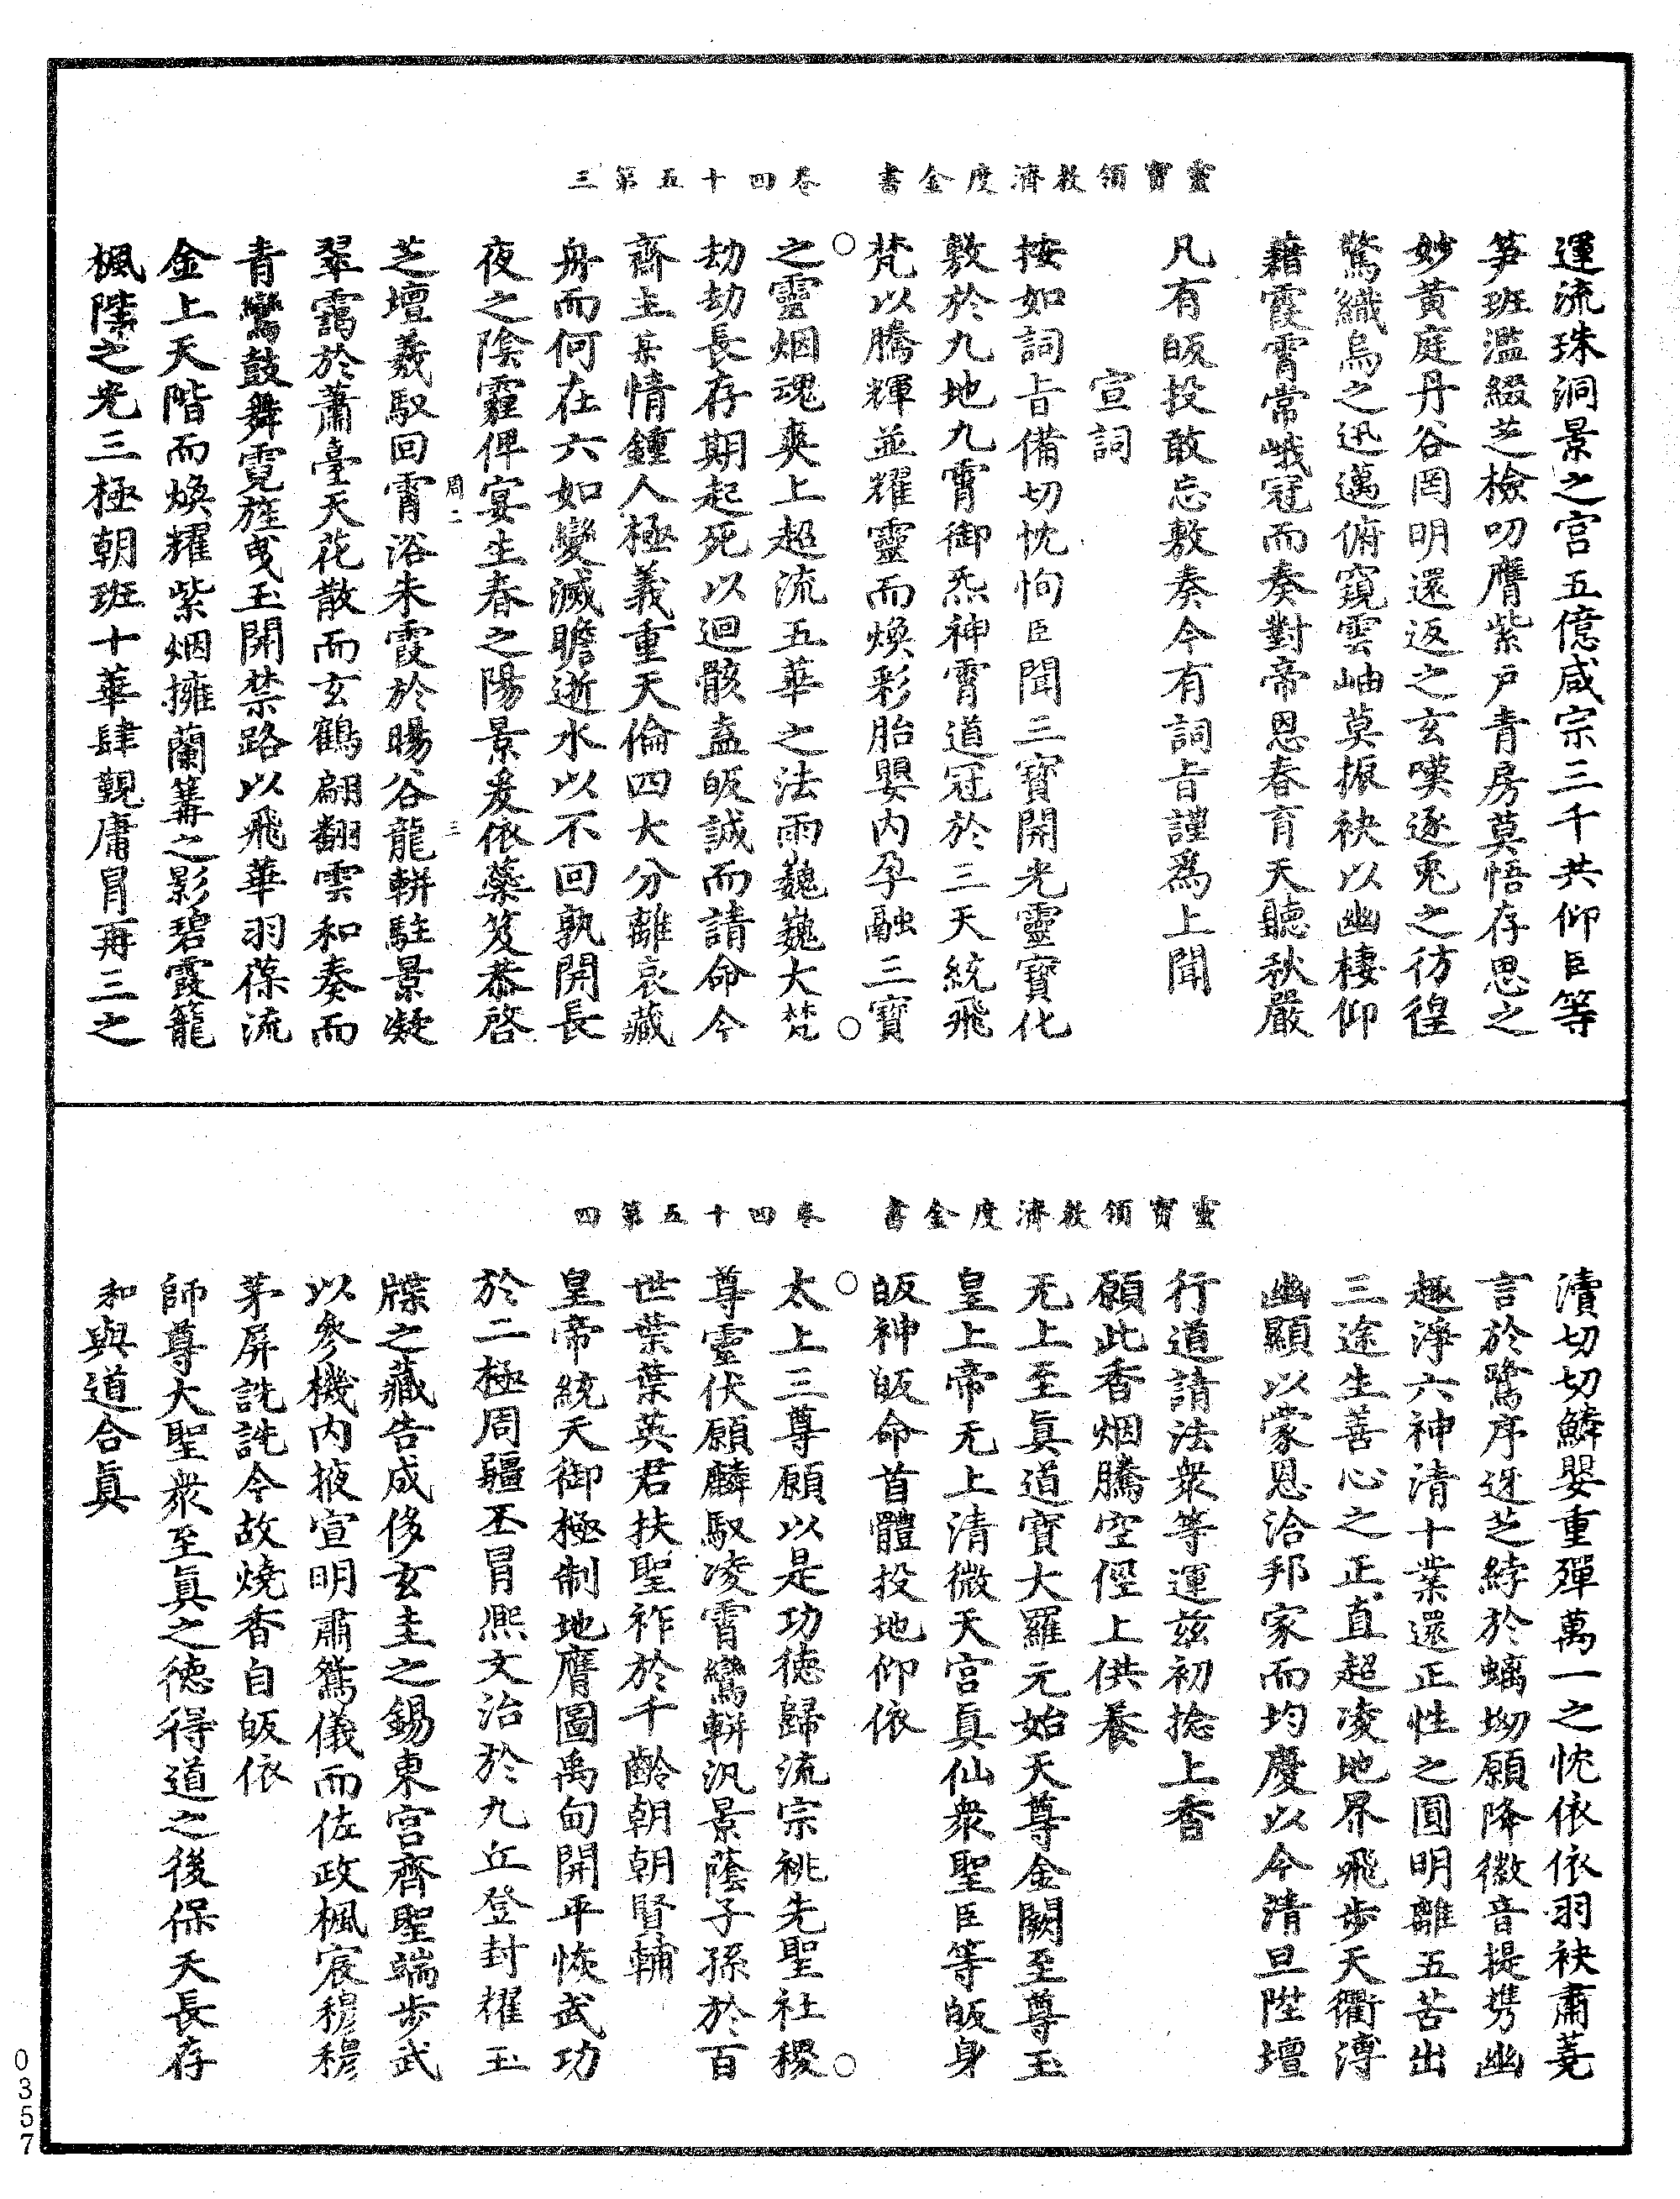 靈寶領教濟度金書　卷四十五第三
運流珠洞景之宮五億咸宗三千共仰臣等
笋班濫綴芝檢叨膺紫戶青房莫悟存思之
妙黃庭丹谷罔明還返之玄嘆逐兎之彷徨
驚織烏之迅邁俯窺雲岫莫振袂以幽棲仰
藉霞霄常峨冠而奏對帝恩春育天聽秋嚴
凡有皈投敢忘敷奏今有詞旨謹爲上聞
宣詞
按如詞旨備切忱恂臣聞三寶開光靈寶化
敷於九地九霄御炁神霄道冠於三天統飛
梵以騰輝並耀靈而煥彩胎嬰內孕融三寶
之靈烟魂爽上超流五華之法雨巍巍大梵
劫劫長存期起死以迴骸盍皈誠而請命今
齋主某情鍾人極義重天倫四大分離哀藏
舟而何在六如變滅瞻逝水以不回孰開長
夜之陰霾俾宴生春之陽景爰依蘂笈恭啓
周二
三
芝壇羲馭回霄浴朱霞於暘谷龍軿駐景凝
翠靄於蕭臺天花散而玄鶴翩翻雲和奏而
青鸞鼓舞霓旌曳玉開禁路以飛華羽葆流
金上天階而煥耀紫烟擁蘭籌之影碧霞籠
楓陛之光三極朝班十華肆覲庸冐再三之
靈寶領教濟度金書　卷四十五第四
瀆切切鱗嬰重殫萬一之忱依依羽袂肅蓂
言於鷺序迓芝綍於螭坳願降徽音提携幽
趣淨六神清十業還正性之圓明離五苦出
三途生善心之正直超凌地界飛步天衢溥
幽顯以蒙恩洽邦家而均慶以今清旦陞壇
行道請法衆等運兹初捻上香
願此香烟騰空俓上供養
无上至眞道寶大羅元始天尊金闕至尊玉
皇上帝无上清微天宮眞仙衆聖臣等皈身
皈神皈命首體投地仰依
太上三尊願以是功德歸流宗祧先聖社稷
尊靈伏願麟馭凌霄鸞軿汎景蔭子孫於百
世葉葉英君扶聖祚於千齡朝朝賢輔
皇帝統天御極制地膺圖禹甸開平恢武功
於二極周疆丕冐熙文治於九丘登封櫂玉
牒之藏告成侈玄圭之錫東宮齊聖端步武
以參機內掖宣明肅鴛儀而佐政楓宸穆穆
茅屏詵詵今故燒香自皈依
師尊大聖衆至眞之德得道之後保天長存
和與道合眞
0357